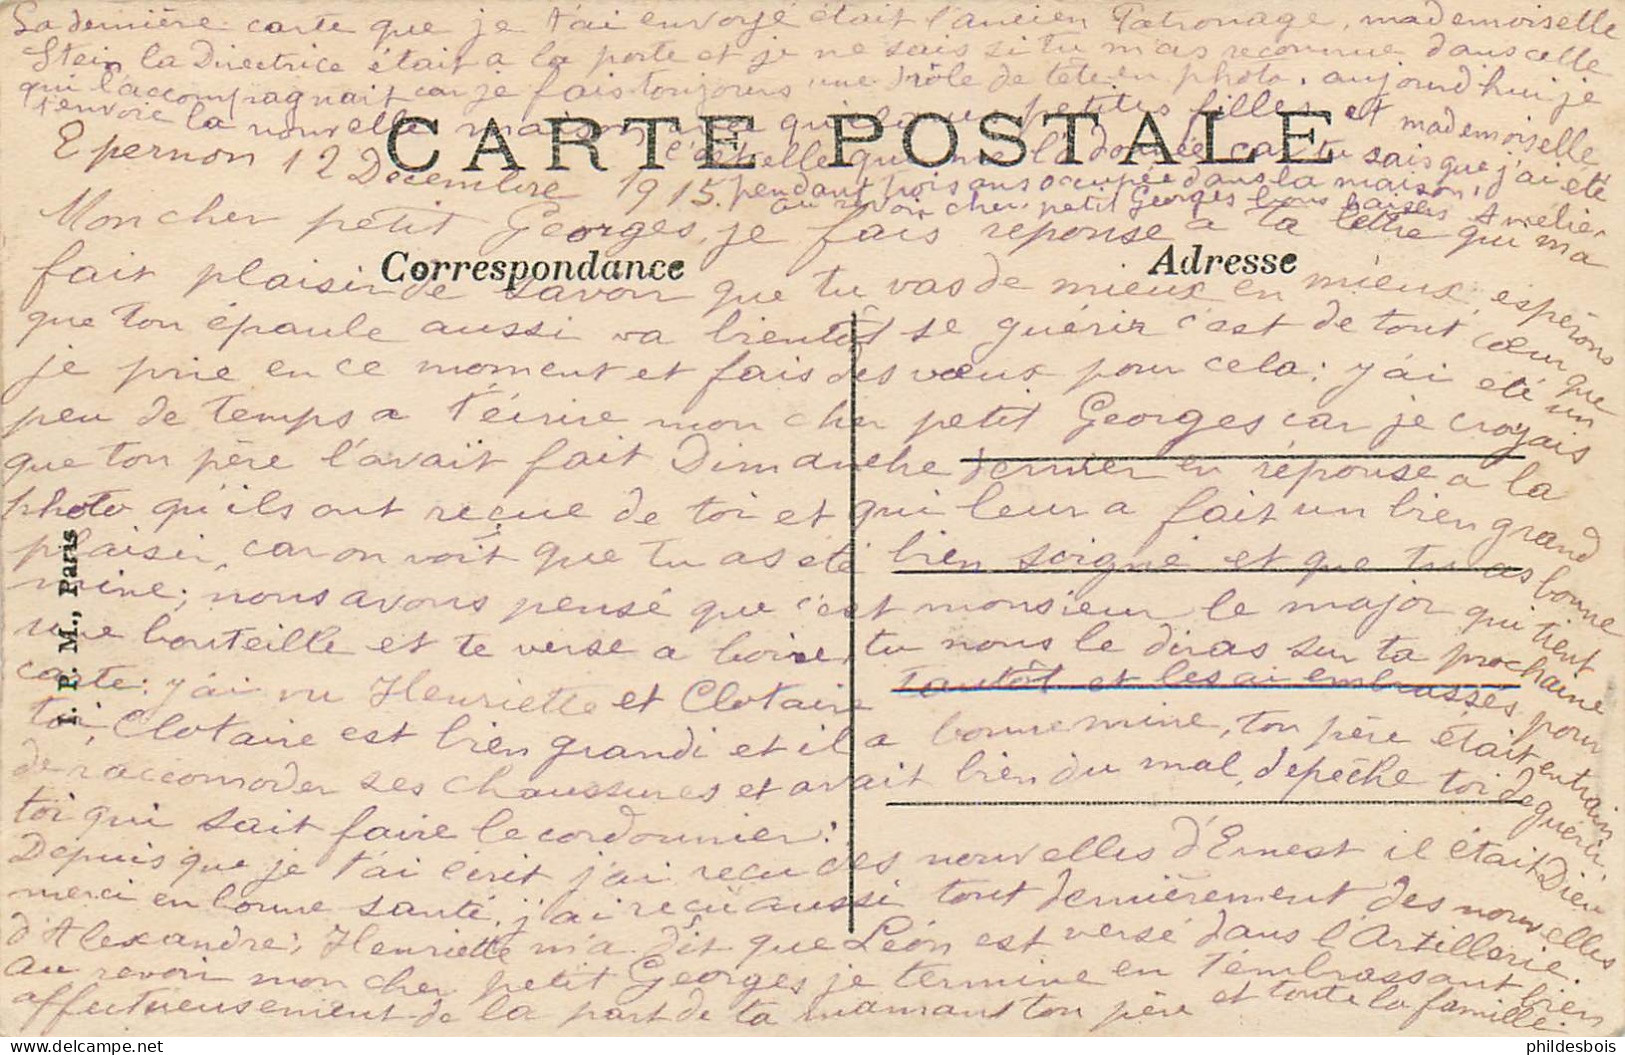 La dernière carte que je t'ai envoyé était l'ancien Patronage, mademoiselle
Stein la Directrice était a la porte et je ne sais si tu m'as reconnue dans celle
qui l'accompagnait car je fais toujours une drôle de tête en photo, aujourd'hui je
t'envoie la nouvelle maison qui petites filles et mademoiselle
c'est elle qui la donnée car tu sais que j'ai été
pendant trois ans occupée dans la maison,
au revoir cher petit Georges bons baisers Amélie.
CARTE POSTALE
Epernon 12 Décembre 1915.
Mon cher petit Georges, je fais reponse a ta lettre qui ma
Correspondance
Adresse
fait plaisir de savoir que tu vas de mieux en mieux, espérons
que ton épaule aussi va bientôt se guérir c'est de tout cœur que
je prie en ce moment et fais des vœux pour cela; j'ai été un
peu de temps a t'écrire mon cher petit Georges car je croyais
que ton père l'avait fait Dimanche dernier en réponse a la
photo qu'ils ont reçue de toi et qui leur a fait un bien grand
plaisir, car on voit que tu as été bien soigné et que tu as bonne
mine; nous avons pensé que c'est monsieur le major qui tient
une bouteille et te verse a boire, tu nous le diras sur ta prochaine
carte; j'ai vu Henriette et Clotaire tantôt et les ai embrassés pour
toi, Clotaire est bien grandi et il a bonne mine, ton père était en train
de raccomoder ses chaussures et avait bien du mal, depêche toi de guérir
toi qui sait faire le cordonnier;
Depuis que je t'ai écrit j'ai recu des nouvelles d'Ernest il était Dieu
merci en bonne santé, j'ai reçu aussi tout dernièrement des nouvelles
d'Alexandre; Henriette m'a dit que Léon est versé dans l'Artillerie.
au revoir mon cher petit Georges je termine en t'embrassant bien
affectueusement de la part de ta maman ton père et toute la famille.
I. P. M., Paris
phildesbois